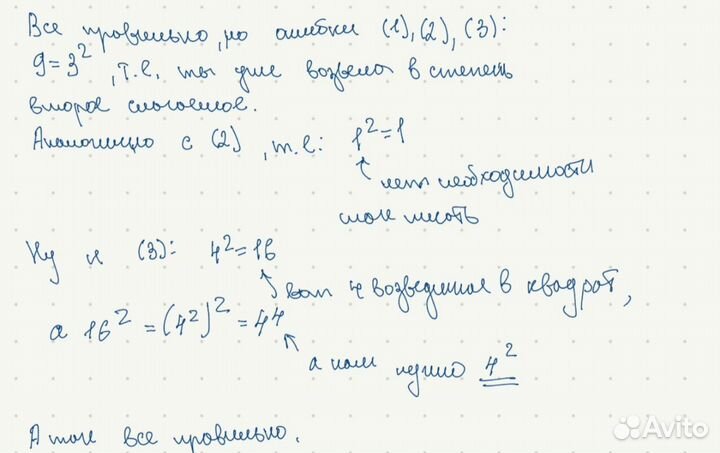 Все правильно, но ошибки (1), (2), (3):
9 = 3², т.е. ты уже возвела в степень
второе слагаемое.
Аналогично с (2), т.е: 1² = 1
нет необходимости
так писать
Ну и (3): 4² = 16
вот 4 возведенное в квадрат,
а 16² = (4²)² = 4⁴
а нам нужно 4²
А так все правильно.
Avito